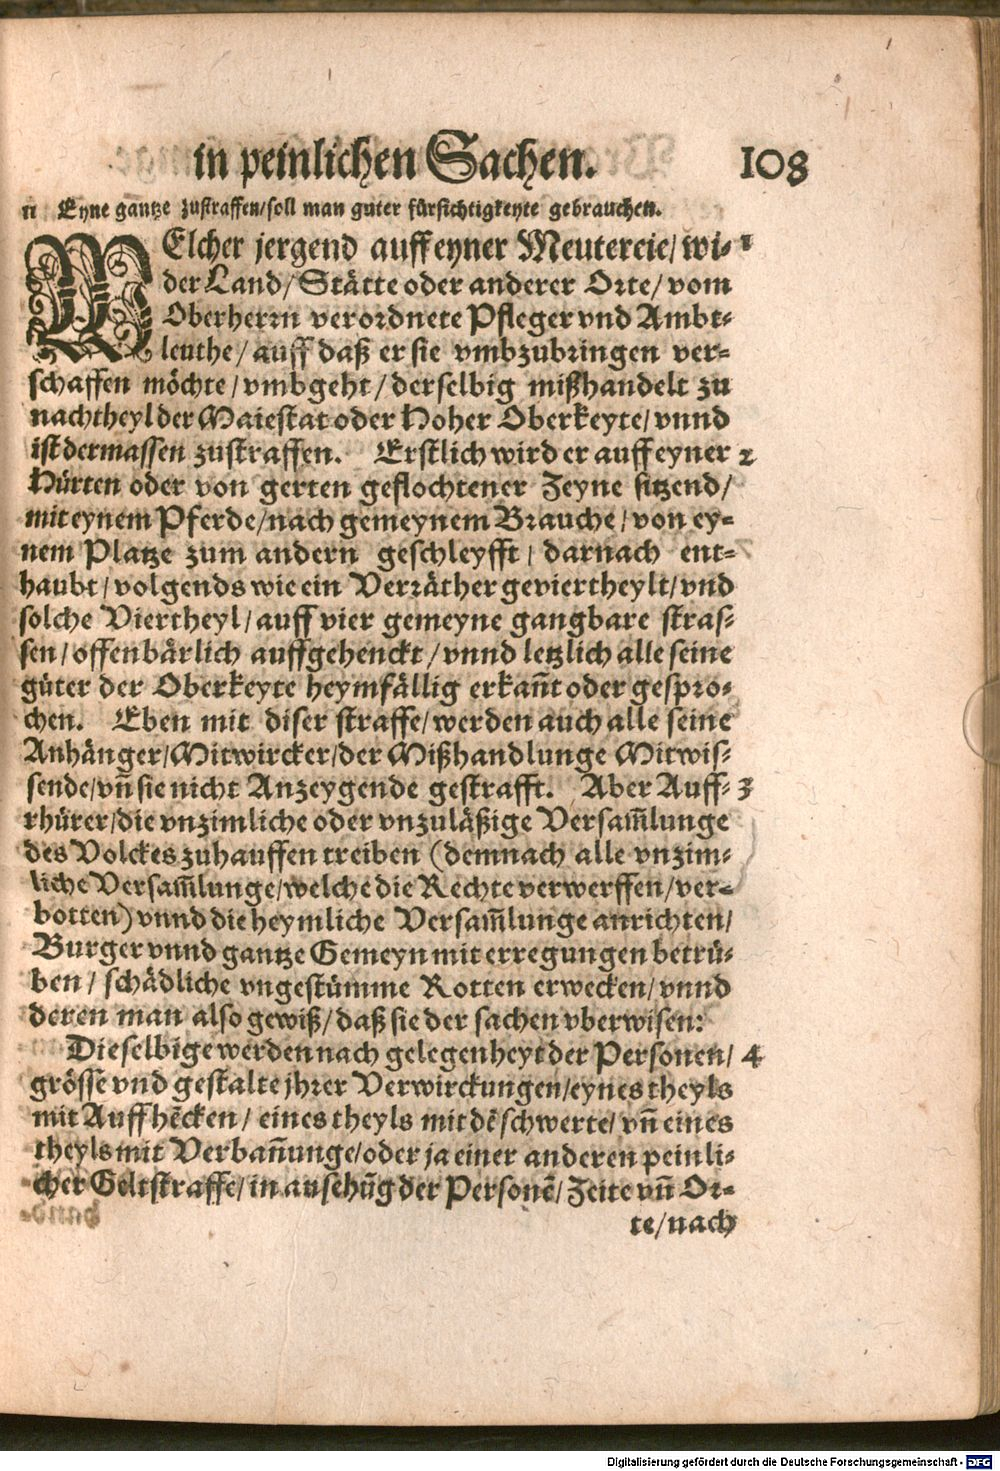 in peinlichen Sachen. 108
11 Eyne gantze zustraffen/soll man guter fürsichtigkeyte gebrauchen.
WElcher jergend auff eyner Meutereie/wi- 1
der Land/ Stätte oder anderer Orte/ vom
Oberherrn verordnete Pfleger vnd Ambt-
leuthe/ auff daß er sie vmbzubringen ver-
schaffen möchte/vmbgeht/derselbig mißhandelt zu
nachtheyl der Maiestat oder Hoher Oberkeyte/ vnnd
ist dermassen zustraffen. Erstlich wird er auff eyner 2
Hürten oder von gerten geflochtener Zeyne sitzend/
mit eynem Pferde/nach gemeynem Brauche/ von ey-
nem Platze zum andern geschleyfft/ darnach ent-
haubt/volgends wie ein Verräther geviertheylt/ vnd
solche Viertheyl/auff vier gemeyne gangbare stras-
sen/offenbärlich auffgehenckt/vnnd letzlich alle seine
güter der Oberkeyte heymfällig erkañt oder gespro-
chen. Eben mit diser straffe/werden auch alle seine
Anhänger/Mitwircker/der Mißhandlunge Mitwis-
sende/vñ sie nicht Anzeygende gestrafft. Aber Auff- 3
rhürer/die vnzimliche oder vnzuläßige Versam̃lunge
des Volckes zuhauffen treiben (demnach alle vnzim-
liche Versam̃lunge/welche die Rechte verwerffen/ver-
botten) vnnd die heymliche Versam̃lunge anrichten/
Burger vnnd gantze Gemeyn mit erregungen betrü-
ben/ schädliche vngestümme Rotten erwecken/ vnnd
deren man also gewiß/daß sie der sachen vberwisen:
Dieselbige werden nach gelegenheyt der Personen/ 4
grösse vnd gestalte jhrer Verwirckungen/eynes theyls
mit Auffhẽcken/ eines theyls mit dẽ schwerte/ vñ eines
theyls mit Verbañunge/oder ja einer anderen peinli-
cher Geltstraffe/in ansehũg der Personẽ/ Zeite vñ Or-
te/nach
Digitalisierung gefördert durch die Deutsche Forschungsgemeinschaft - DFG